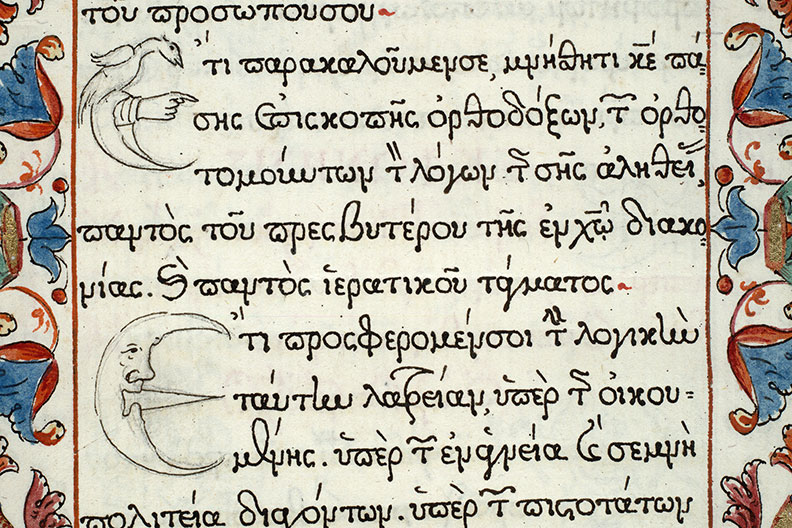 τοῦ προσώπου σου
Ἔτι παρακαλοῦμέν σε, μνήσθητι κ(ύρι)ε πά-
σης ἐπισκοπῆς ὀρθοδόξων, τῶν ὀρθο
τομούντων τὸν λόγον τῆς σῆς ἀληθείας,
παντὸς τοῦ πρεσβυτέρου τῆς ἐν χῶ διακο
νίας. καὶ παντὸς ἱερατικοῦ τάγματος
Ἔτι προσφέρομέν σοι τὴν λογικὴν
ταύτην λατρείαν, ὑπὲρ τῆς οἰκου=
μένης. ὑπὲρ τῶν ἐν ἁγνεία καὶ σεμνῆ
πολιτεία διαγόντων. ὑπὲρ τῶν πιστοτάτων